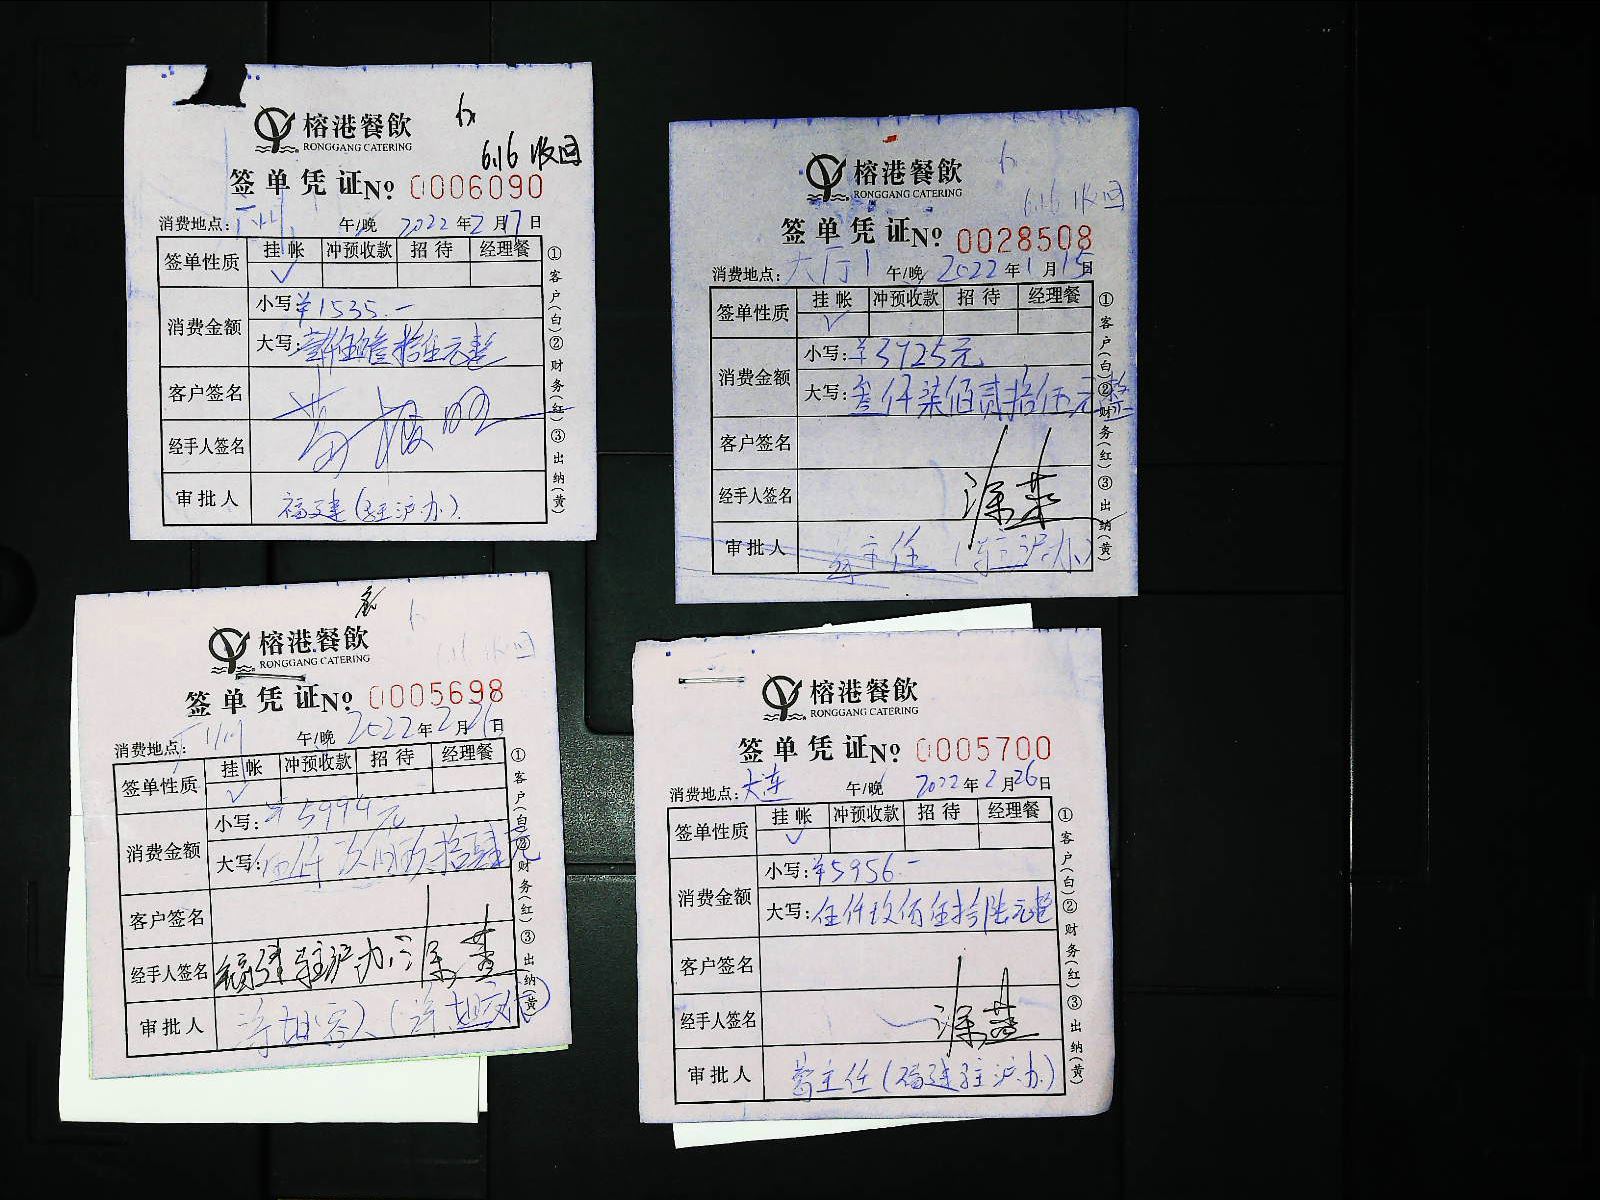 榕港餐飲
RONGGANG CATERING
6.16 收回
签单凭证 No 0006090
消费地点: 广州 午/晚 2022年2月17日
签单性质 挂帐 冲预收款 招待 经理餐
✓
消费金额 小写 ¥1535.-
大写: 壹仟伍佰叁拾伍元整
客户签名
经手人签名
审批人 福建(驻沪办)
①客户(白)②财务(红)③出纳(黄)
榕港餐飲
RONGGANG CATERING
6.16 收回
签单凭证 No 0028508
消费地点: 大厅1 午/晚 2022年1月15日
签单性质 挂帐 冲预收款 招待 经理餐
✓
消费金额 小写: ¥3725元
大写: 叁仟柒佰贰拾伍元整
客户签名
经手人签名 涂燕
审批人 主任(驻沪办)
①客户(白)②财务(红)③出纳(黄)
榕港餐飲
RONGGANG CATERING
6.16 收回
签单凭证 No 0005698
消费地点: 午/晚 2022年2月26日
签单性质 挂帐 冲预收款 招待 经理餐
✓
消费金额 小写: ¥5994元
大写: 伍仟玖佰玖拾肆元
客户签名
经手人签名 福建驻沪办 涂燕
审批人
①客户(白)②财务(红)③出纳(黄)
榕港餐飲
RONGGANG CATERING
签单凭证 No 0005700
消费地点: 大连 午/晚 2022年2月26日
签单性质 挂帐 冲预收款 招待 经理餐
✓
消费金额 小写: ¥5956.-
大写: 伍仟玖佰伍拾陆元整
客户签名
经手人签名 涂燕
审批人 葛主任(福建驻沪办)
①客户(白)②财务(红)③出纳(黄)